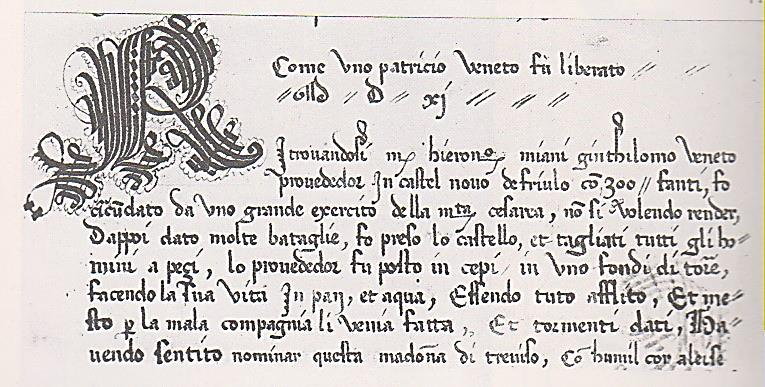 Come vno patricio veneto fu liberato
MD D xj
Ritrouandosi mʒ hieronº miani ginthilomo veneto
prouededor In castel nouo de friulo cõ 300 fanti, fo
circũdato da vno grande exercito della mtà cesarea, nõ si volendo render,
Dappoi dato molte bataglie, fo preso lo castello, et tagliati tutti gli ho=
mini a peçi, lo prouededor fu posto in cepi in vno fondi di torre,
facendo la sua vita In pan, et aqua, Essendo tuto afflito, Et me=
sto ꝑ la mala compagnia li venia fatta, Et tormenti dati, Ha=
uendo sentito nominar questa madoña di treuiso, Cõ humil cor a lei se